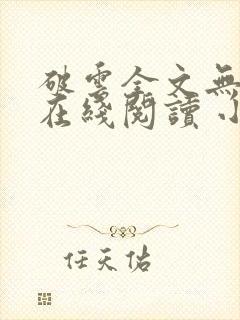 破雲全文無
在綫閱讀 小
任天佑